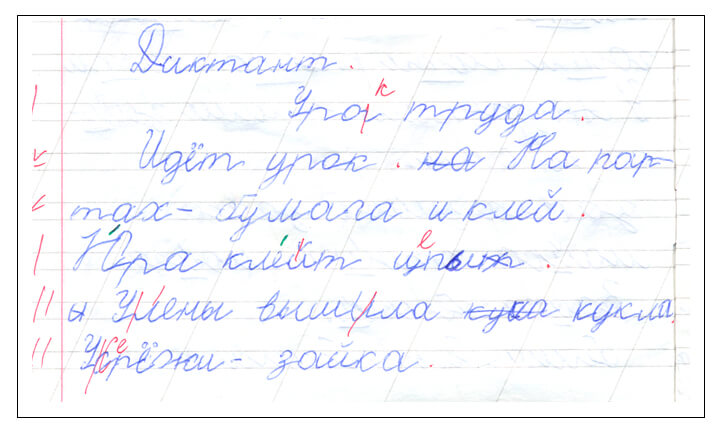 Диктант.
Урок труда.
Идёт урок. на На пар-
тах - бумага и клей.
Юра клеит
Улены вышила кукла.
- зайка.